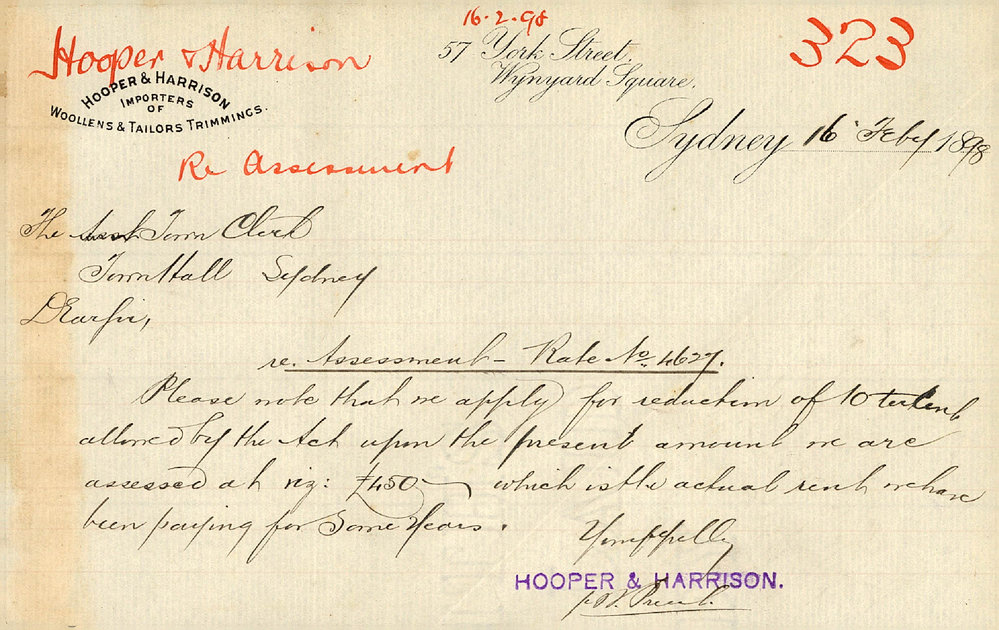 16.2.98
Hooper & Harrison
323
57 York Street,
Wynyard Square.
HOOPER & HARRISON
IMPORTERS
OF
WOOLLENS & TAILORS TRIMMINGS.
Sydney 16 Feby 1898
Re Assessment
The Town Clerk
Town Hall Sydney
Dear Sir,
re. Assessment - Rate No. 4627.
Please note that we apply for reduction of 10
allowed by the Act upon the present amount we are
assessed at viz: £450 which is the actual rent we have
been paying for some years.
Yours
HOOPER & HARRISON.